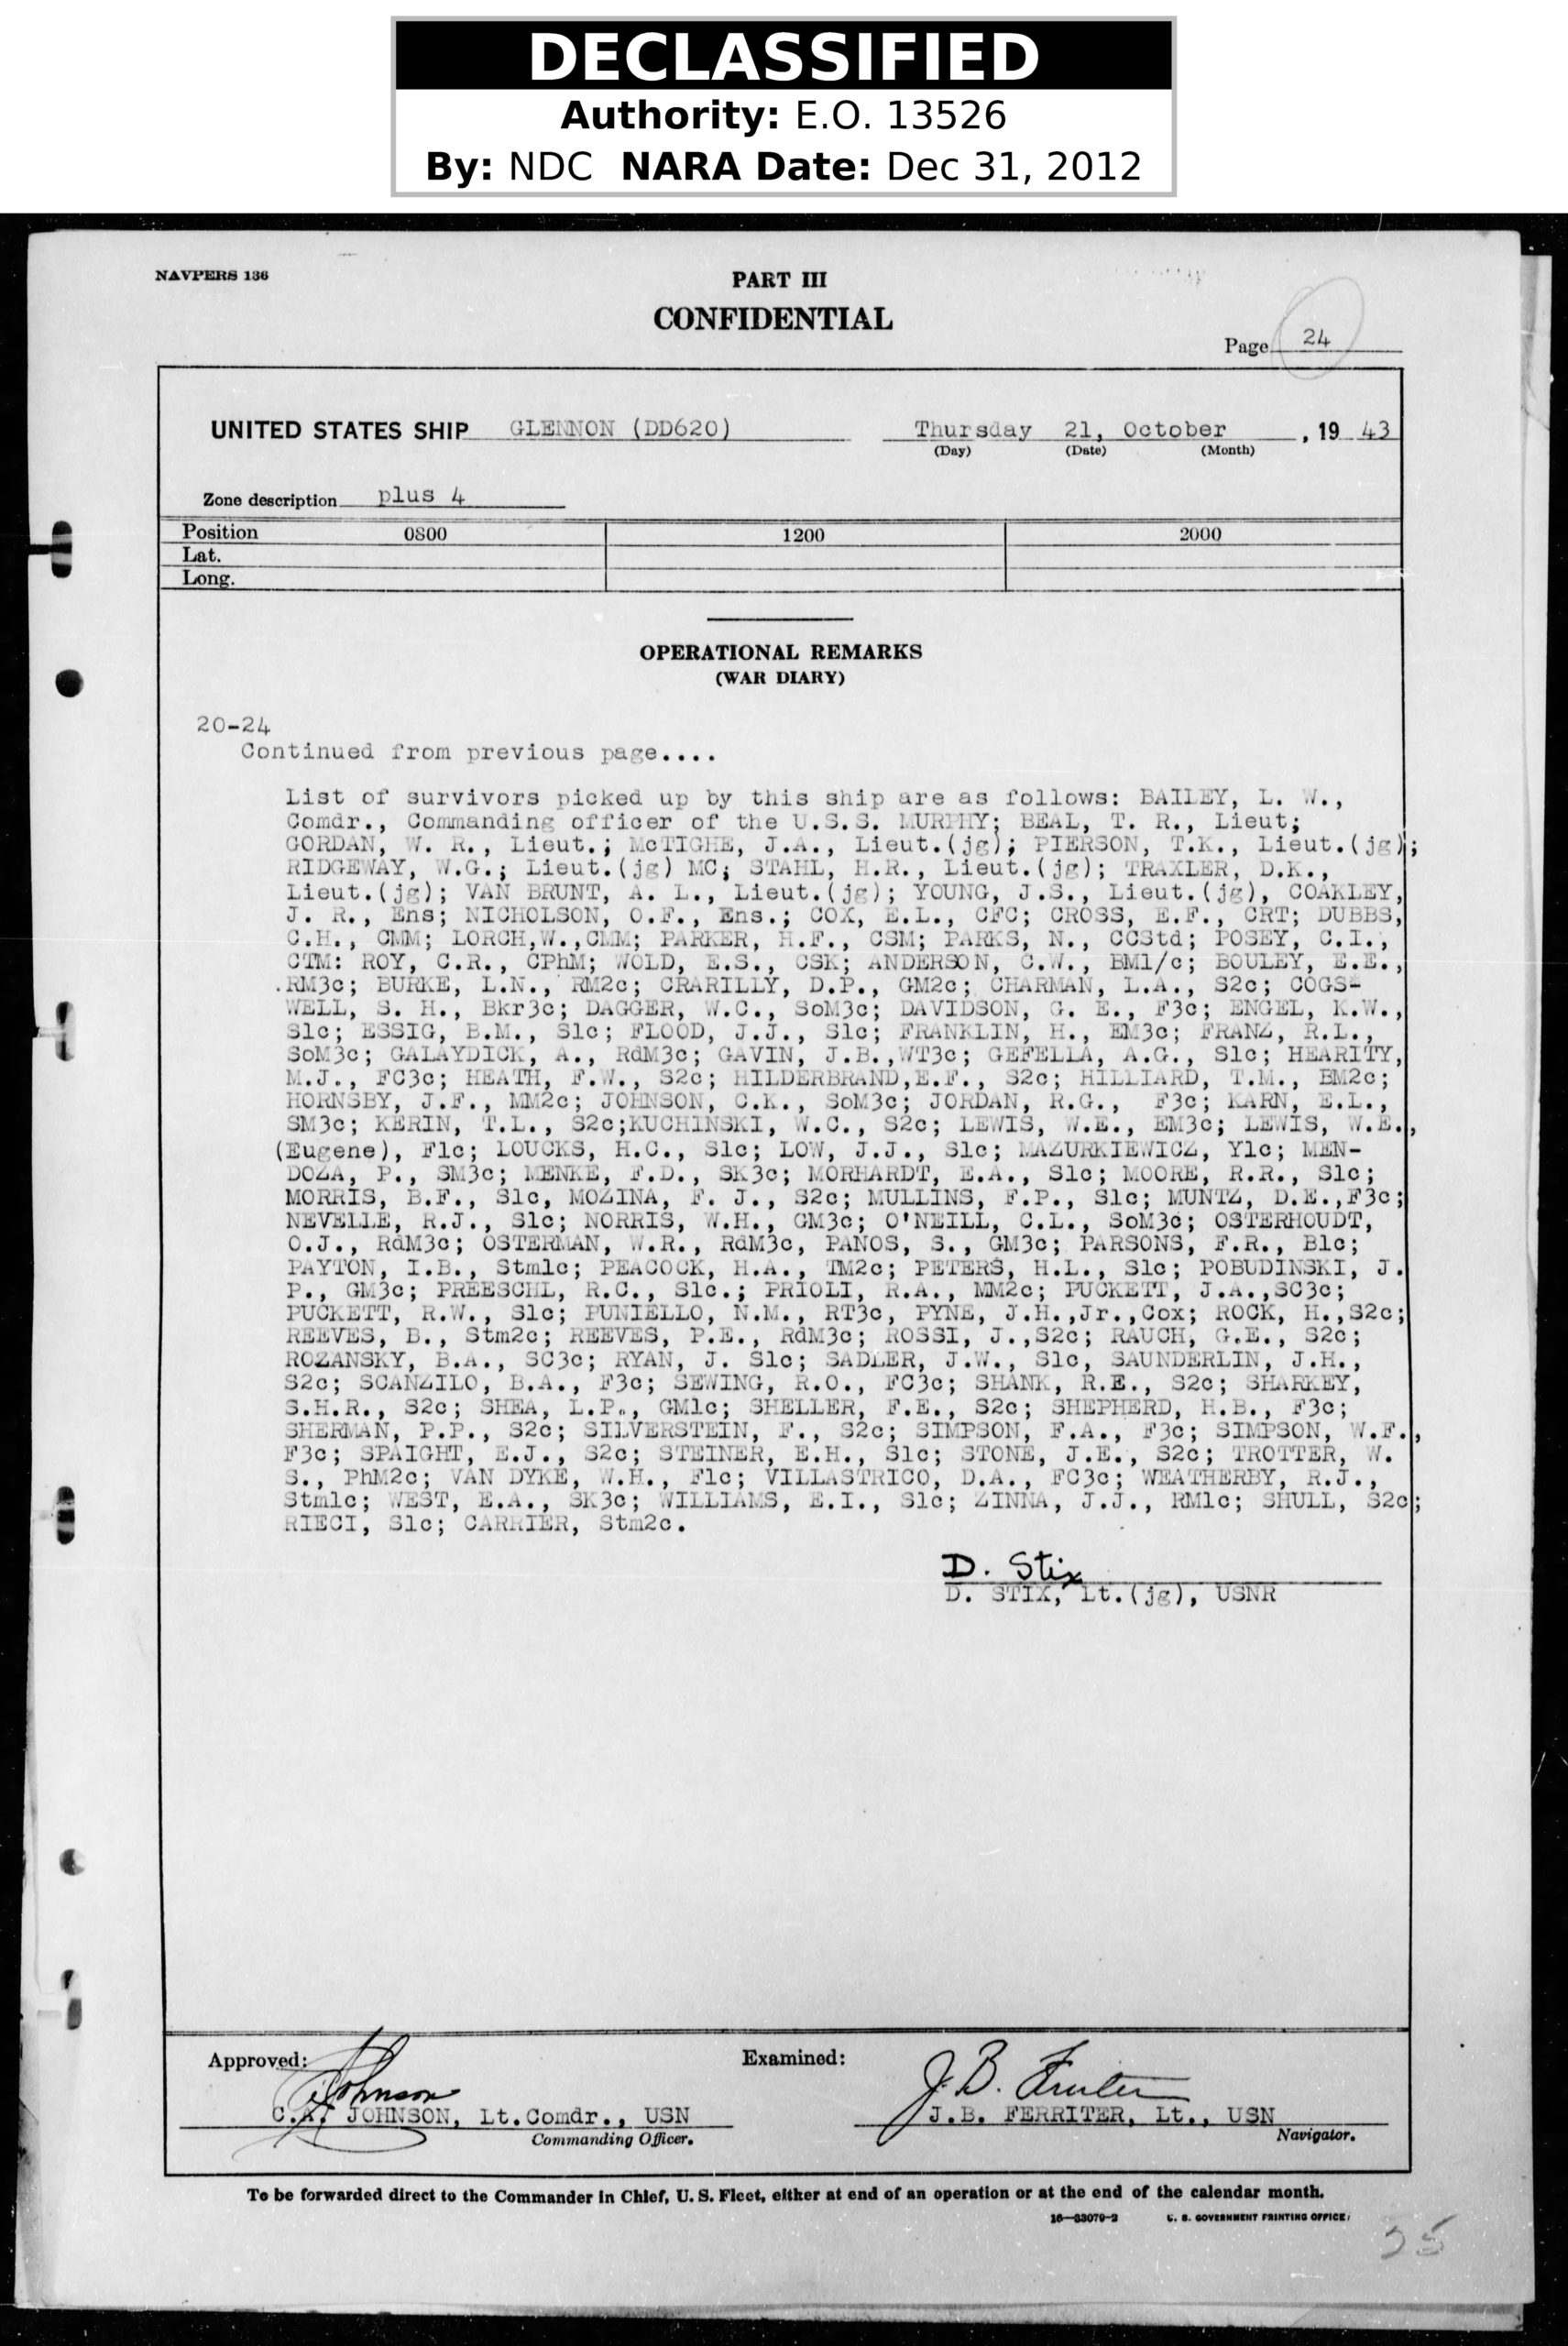 DECLASSIFIED
Authority: E.O. 13526
By: NDC NARA Date: Dec 31, 2012
NAVPERS 136
PART III
CONFIDENTIAL
Page 24
UNITED STATES SHIP GLENNON (DD620) Thursday 21, October , 19 43
(Day) (Date) (Month)
Zone description plus 4
Position 0800 1200 2000
Lat.
Long.
OPERATIONAL REMARKS
(WAR DIARY)
20-24
Continued from previous page....
List of survivors picked up by this ship are as follows: BAILEY, L. W.,
Comdr., Commanding officer of the U.S.S. MURPHY; BEAL, T. R., Lieut;
GORDAN, W. R., Lieut.; McTIGHE, J.A., Lieut.(jg); PIERSON, T.K., Lieut.(jg);
RIDGEWAY, W.G.; Lieut.(jg) MC; STAHL, H.R., Lieut.(jg); TRAXLER, D.K.,
Lieut.(jg); VAN BRUNT, A. L., Lieut.(jg); YOUNG, J.S., Lieut.(jg), COAKLEY,
J. R., Ens; NICHOLSON, O.F., Ens.; COX, E.L., CFC; CROSS, E.F., CRT; DUBBS,
C.H., CMM; LORCH,W.,CMM; PARKER, H.F., CSM; PARKS, N., CCStd; POSEY, C.I.,
CTM: ROY, C.R., CPhM; WOLD, E.S., CSK; ANDERSON, C.W., BM1/c; BOULEY, E.E.,
.RM3c; BURKE, L.N., RM2c; CRARILLY, D.P., GM2c; CHARMAN, L.A., S2c; COGS-
WELL, S. H., Bkr3c; DAGGER, W.C., SoM3c; DAVIDSON, G. E., F3c; ENGEL, K.W.,
S1c; ESSIG, B.M., S1c; FLOOD, J.J., S1c; FRANKLIN, H., EM3c; FRANZ, R.L.,
SoM3c; GALAYDICK, A., RdM3c; GAVIN, J.B.,WT3c; GEFELLA, A.G., S1c; HEARITY,
M.J., FC3c; HEATH, F.W., S2c; HILDERBRAND,E.F., S2c; HILLIARD, T.M., BM2c;
HORNSBY, J.F., MM2c; JOHNSON, C.K., SoM3c; JORDAN, R.G., F3c; KARN, E.L.,
SM3c; KERIN, T.L., S2c;KUCHINSKI, W.C., S2c; LEWIS, W.E., EM3c; LEWIS, W.E.,
(Eugene), F1c; LOUCKS, H.C., S1c; LOW, J.J., S1c; MAZURKIEWICZ, Y1c; MEN-
DOZA, P., SM3c; MENKE, F.D., SK3c; MORHARDT, E.A., S1c; MOORE, R.R., S1c;
MORRIS, B.F., S1c, MOZINA, F. J., S2c; MULLINS, F.P., S1c; MUNTZ, D.E.,F3c;
NEVELLE, R.J., S1c; NORRIS, W.H., GM3c; O'NEILL, C.L., SoM3c; OSTERHOUDT,
O.J., RdM3c; OSTERMAN, W.R., RdM3c, PANOS, S., GM3c; PARSONS, F.R., B1c;
PAYTON, I.B., Stm1c; PEACOCK, H.A., TM2c; PETERS, H.L., S1c; POBUDINSKI, J.
P., GM3c; PREESCHL, R.C., S1c.; PRIOLI, R.A., MM2c; PUCKETT, J.A.,SC3c;
PUCKETT, R.W., S1c; PUNIELLO, N.M., RT3c, PYNE, J.H.,Jr.,Cox; ROCK, H.,S2c;
REEVES, B., Stm2c; REEVES, P.E., RdM3c; ROSSI, J.,S2c; RAUCH, G.E., S2c;
ROZANSKY, B.A., SC3c; RYAN, J. S1c; SADLER, J.W., S1c, SAUNDERLIN, J.H.,
S2c; SCANZILO, B.A., F3c; SEWING, R.O., FC3c; SHANK, R.E., S2c; SHARKEY,
S.H.R., S2c; SHEA, L.P., GM1c; SHELLER, F.E., S2c; SHEPHERD, H.B., F3c;
SHERMAN, P.P., S2c; SILVERSTEIN, F., S2c; SIMPSON, F.A., F3c; SIMPSON, W.F.,
F3c; SPAIGHT, E.J., S2c; STEINER, E.H., S1c; STONE, J.E., S2c; TROTTER, W.
S., PhM2c; VAN DYKE, W.H., F1c; VILLASTRICO, D.A., FC3c; WEATHERBY, R.J.,
Stm1c; WEST, E.A., SK3c; WILLIAMS, E.I., S1c; ZINNA, J.J., RM1c; SHULL, S2c;
RIECI, S1c; CARRIER, Stm2c.
D. Stix
D. STIX, Lt.(jg), USNR
Approved: Examined:
C A Johnson J. B. Ferriter
C.A. JOHNSON, Lt.Comdr., USN J.B. FERRITER, Lt., USN
Commanding Officer. Navigator.
To be forwarded direct to the Commander in Chief, U. S. Fleet, either at end of an operation or at the end of the calendar month.
16—33079-2 U. S. GOVERNMENT PRINTING OFFICE
25